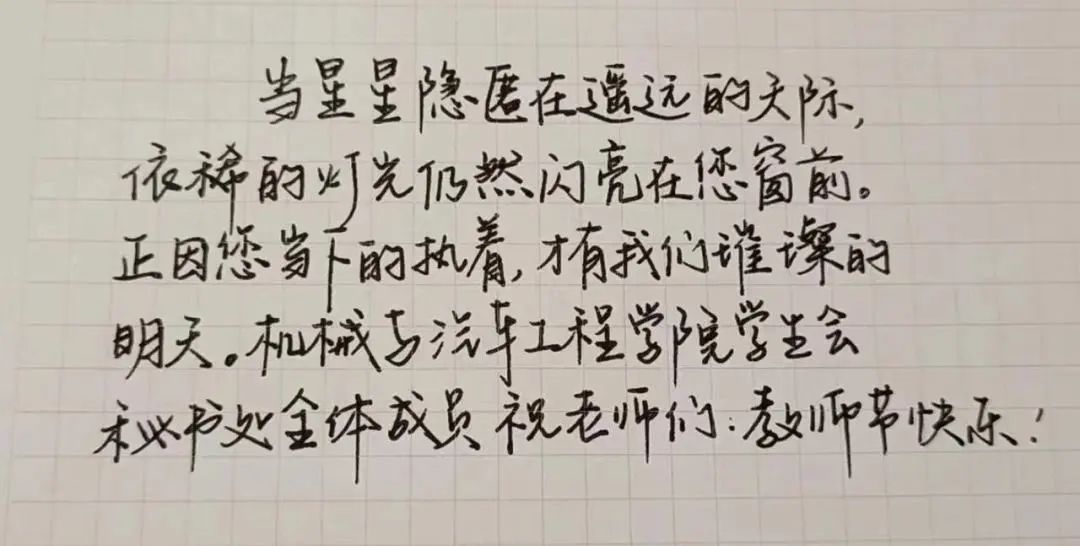 当星星隐匿在遥远的天际,
依稀的灯光仍然闪亮在您窗前。
正因您当下的执着,才有我们璀璨的
明天。机械与汽车工程学院学生会
秘书处全体成员祝老师们:教师节快乐!